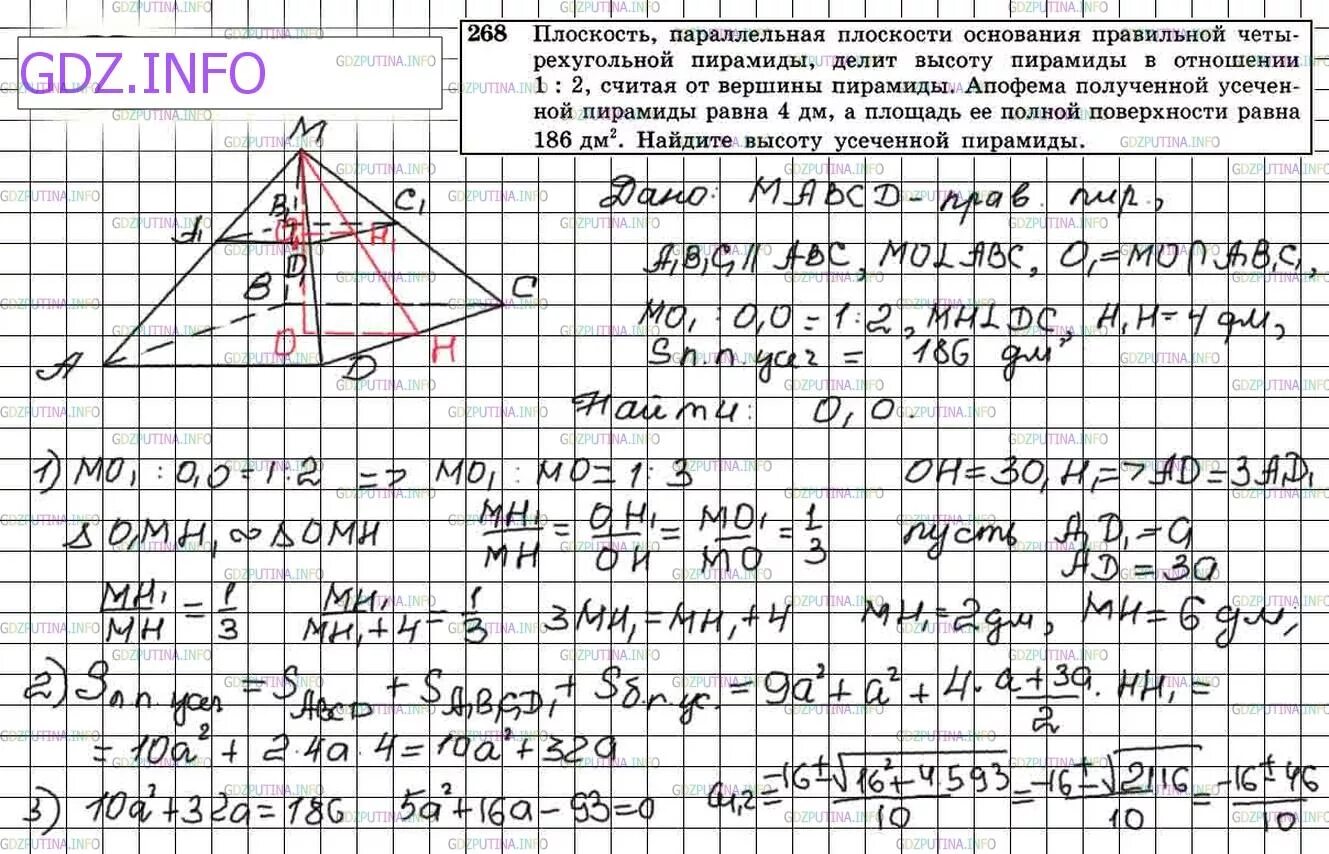 GDZ.INFO
268 Плоскость, параллельная плоскости основания правильной четы-
рехугольной пирамиды, делит высоту пирамиды в отношении
1 : 2, считая от вершины пирамиды. Апофема полученной усечен-
ной пирамиды равна 4 дм, а площадь ее полной поверхности равна
186 дм². Найдите высоту усеченной пирамиды.
M
B₁ C₁
A₁ O₁ H₁
D₁
B C
O H
A D
Дано: MABCD - прав. пир.,
A₁B₁C₁ || ABC, MO⊥ABC, O₁=MO∩A₁B₁C₁,
MO₁ : O₁O = 1:2, MH⊥DC, H₁H=4 дм,
Sп.п.усеч = 186 дм²
Найти: O₁O.
1) MO₁ : O₁O=1:2 => MO₁ : MO=1:3 OH=3O₁H₁=>AD=3A₁D₁
Δ O₁MH₁ ∞ ΔOMH MH₁/MH = O₁H₁/OH = MO₁/MO = 1/3 пусть A₁D₁=a
AD=3a
MH₁/MH = 1/3 MH₁/MH₁+4 = 1/3 3MH₁=MH₁+4 MH₁=2дм, MH=6 дм;
2) Sп.п.усеч = S ABCD + S A₁B₁C₁D₁ + Sб.п.ус. = 9a²+a²+4·a+3a/2·HH₁=
= 10a²+ 2·4a·4=10a²+32a
3) 10a²+32a=186 5a²+16a-93=0 a₁,₂=-16±√16²+4·5·93/10=-16±√2116/10=-16±46/10